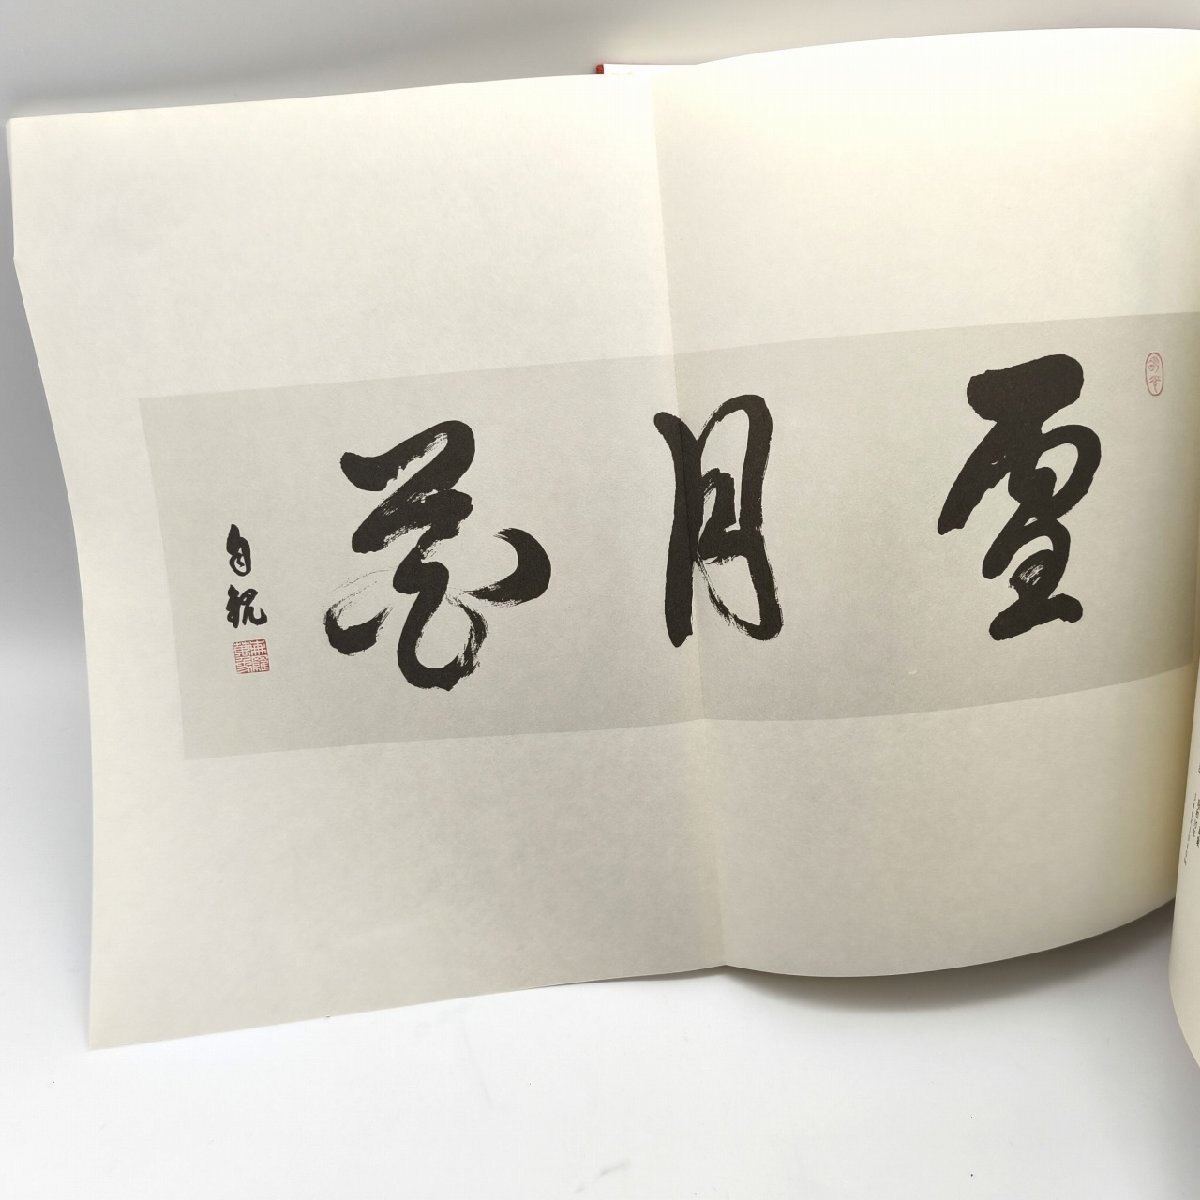 雪月花
自